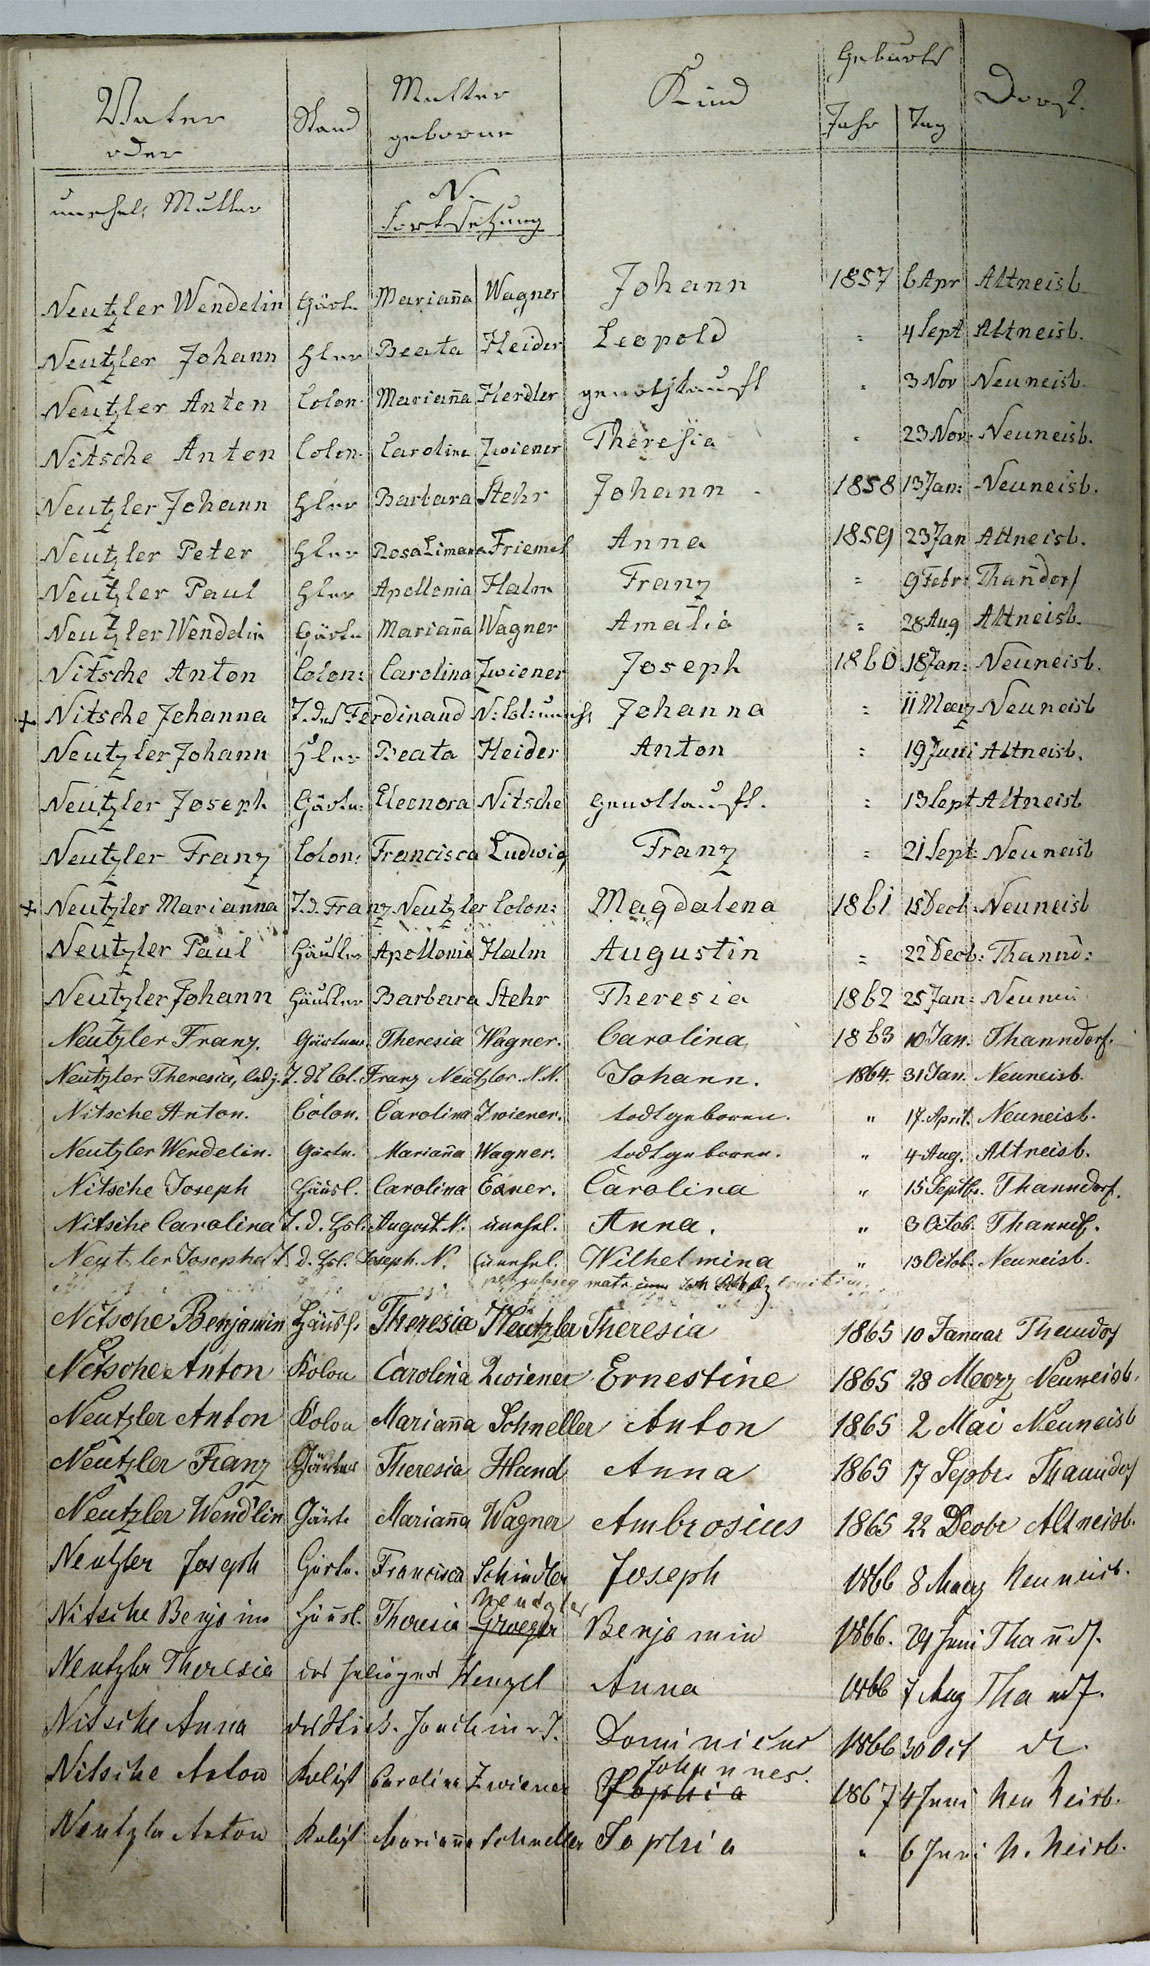 Geburts
Vater Stand Mutter Kind Jahr Tag Dorf.
oder geborne
unehel. Mutter N.
Fortsetzung
Neutzler Wendelin Gärtn. Mariana Wagner Johann 1857 6 Apr Altneisb
Neutzler Johann Hler Beata Heider Leopold = 4 Sept Altneisb.
Neutzler Anton Colon. Mariana Herdler genothtauft = 3 Nov Neuneisb.
Nitsche Anton Colon. Carolina Zwiener Theresia = 23 Nov. Neuneisb.
Neutzler Johann Hler Barbara Stehr Johann 1858 13 Jan: Neuneisb.
Neutzler Peter Hler Rosa Limana Friemel Anna 1859 23 Jan Altneisb.
Neutzler Paul Hler Apollonia Halm Franz = 9 Febr: Thandorf
Neutzler Wendelin Gärtn Mariana Wagner Amalia = 28 Aug Altneisb.
Nitsche Anton Colon: Carolina Zwiener Joseph 1860 18 Jan: Neuneisb.
+ Nitsche Johanna T. des Ferdinand N: Col: unehl Johanna = 11 Maerz Neuneisb
Neutzler Johann Hler Beata Heider Anton = 19 Juni Altneisb.
Neutzler Joseph Gärtn: Eleonora Nitsche genottauft. = 13 Sept Altneisb
Neutzler Franz Colon: Francisca Ludwig Franz = 21 Sept: Neuneisb
+ Neutzler Marianna T. d. Franz Neutzler Colon: Magdalena 1861 15 Decb: Neuneisb
Neutzler Paul Häusler Apollonia Halm Augustin = 22 Decb: Thannd:
Neutzler Johann Häusler Barbara Stehr Theresia 1862 25 Jan: Neuneis
Neutzler Franz. Gärtner. Theresia Wagner. Carolina 1863 10 Jan. Thanndorf.
Neutzler Theresia, ledg. T. ds Col. Franz Neutzler. N.N. Johann. 1864. 31 Jan. Neuneisb.
Nitsche Anton. Colon. Carolina Zwiener. todtgeboren. " 17. April. Neuneisb.
Neutzler Wendelin. Gärtn. Mariana Wagner. todtgeboren. " 4 Aug. Altneisb.
Nitsche Joseph Häusl. Carolina Exner. Carolina " 15 Septbr. Thanndorf.
Nitsche Carolina T. d. Hsl. August N. unehel. Anna. " 3 Octob. Thanndf.
Neutzler Josepha T. d. Hsl. Joseph. N. unehel. Wilhelmina " 13 Octob. Neuneisb.
per subseq matr.
Nitsche Benjamin Häusl. Theresia Neutzler Theresia 1865 10 Januar Thandof
Nitsche Anton Kolon Carolina Zwiener Ernestine 1865 28 Maerz Neuneisb.
Neutzler Anton Kolon Mariana Schneller Anton 1865 2 Mai Neuneisb
Neutzler Franz Gärtner Theresia Hand Anna 1865 17 Septbr Thanndof
Neutzler Wendlin Gärtn Mariana Wagner Ambrosius 1865 22 Decbr Altneisb.
Neutzler Joseph Gärtn. Francisca Schindler Joseph 1866 8 Maerz Neuneisb.
Neuzler
Nitsche Benjamin Häusl. Theresia Groeger Benjamin 1866. 29 Juni Thandf.
Neutzler Theresia des Wenzel Anna 1866 7 Aug Thandf.
Nitsche Anna des Joachim T. Dominicus 1866 30 Oct
Johannes.
Nitsche Anton Kolist Carolina Zwiener Sophia 1867 4 Juni Neu Neisb.
Neutzler Anton Kolist Mariana Schneller Sophia " 6 Juni N. Neisb.